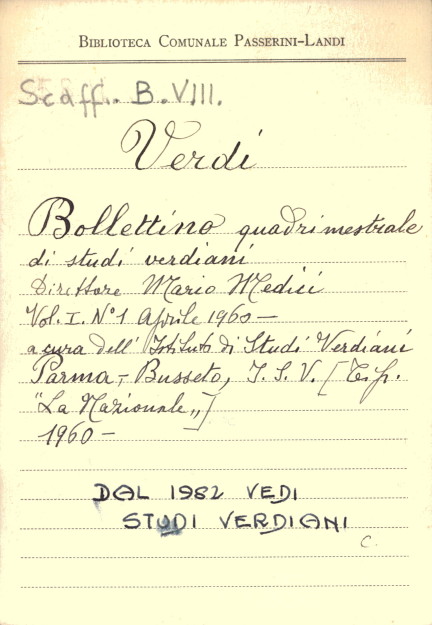 BIBLIOTECA COMUNALE PASSERINI-LANDI
Scaff. B.VIII.
Verdi
Bollettino quadrimestrale
di studi verdiani
Direttore Mario Medici
Vol. I. N° 1 Aprile 1960 —
a cura dell' Istituto di Studi Verdiani
Parma-, Busseto, I. S. V. [Tip.
"La Nazionale„]
1960 —
DAL 1982 VEDI
STUDI VERDIANI
C.